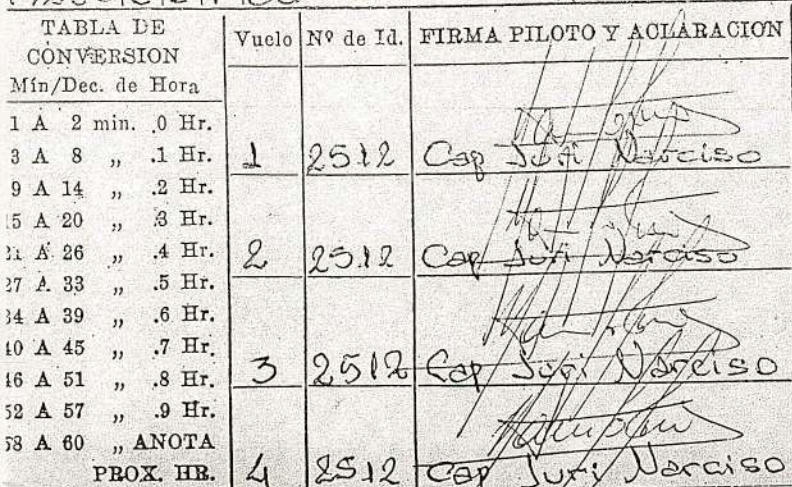 TABLA DE
CONVERSION
Mín/Dec. de Hora
1 A 2 min. .0 Hr.
3 A 8 „ .1 Hr.
9 A 14 „ .2 Hr.
15 A 20 „ .3 Hr.
21 A 26 „ .4 Hr.
27 A 33 „ .5 Hr.
34 A 39 „ .6 Hr.
40 A 45 „ .7 Hr.
46 A 51 „ .8 Hr.
52 A 57 „ .9 Hr.
58 A 60 „ ANOTA
PROX. HR.
Vuelo Nº de Id. FIRMA PILOTO Y ACLARACION
1 2512 Cap Juri Narciso
2 2512 Cap Juri Narciso
3 2512 Cap Juri Narciso
4 2512 Cap Juri Narciso